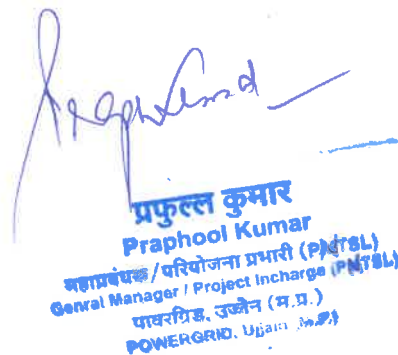 प्रफुल्ल कुमार
Praphool Kumar
महाप्रबंधक / परियोजना प्रभारी
Genral Manager / Project Incharge
पावरग्रिड, उज्जैन (म.प्र.)
POWERGRID, Ujjain (M.P.)